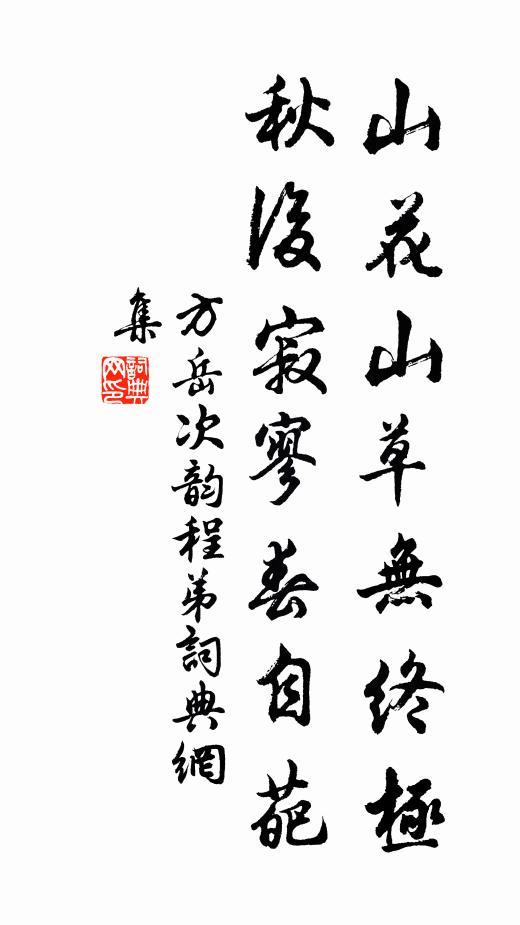 山花山草無終極
秋後寂寥春自葩
方岳次韵程弟詞典網
集
詞典網印